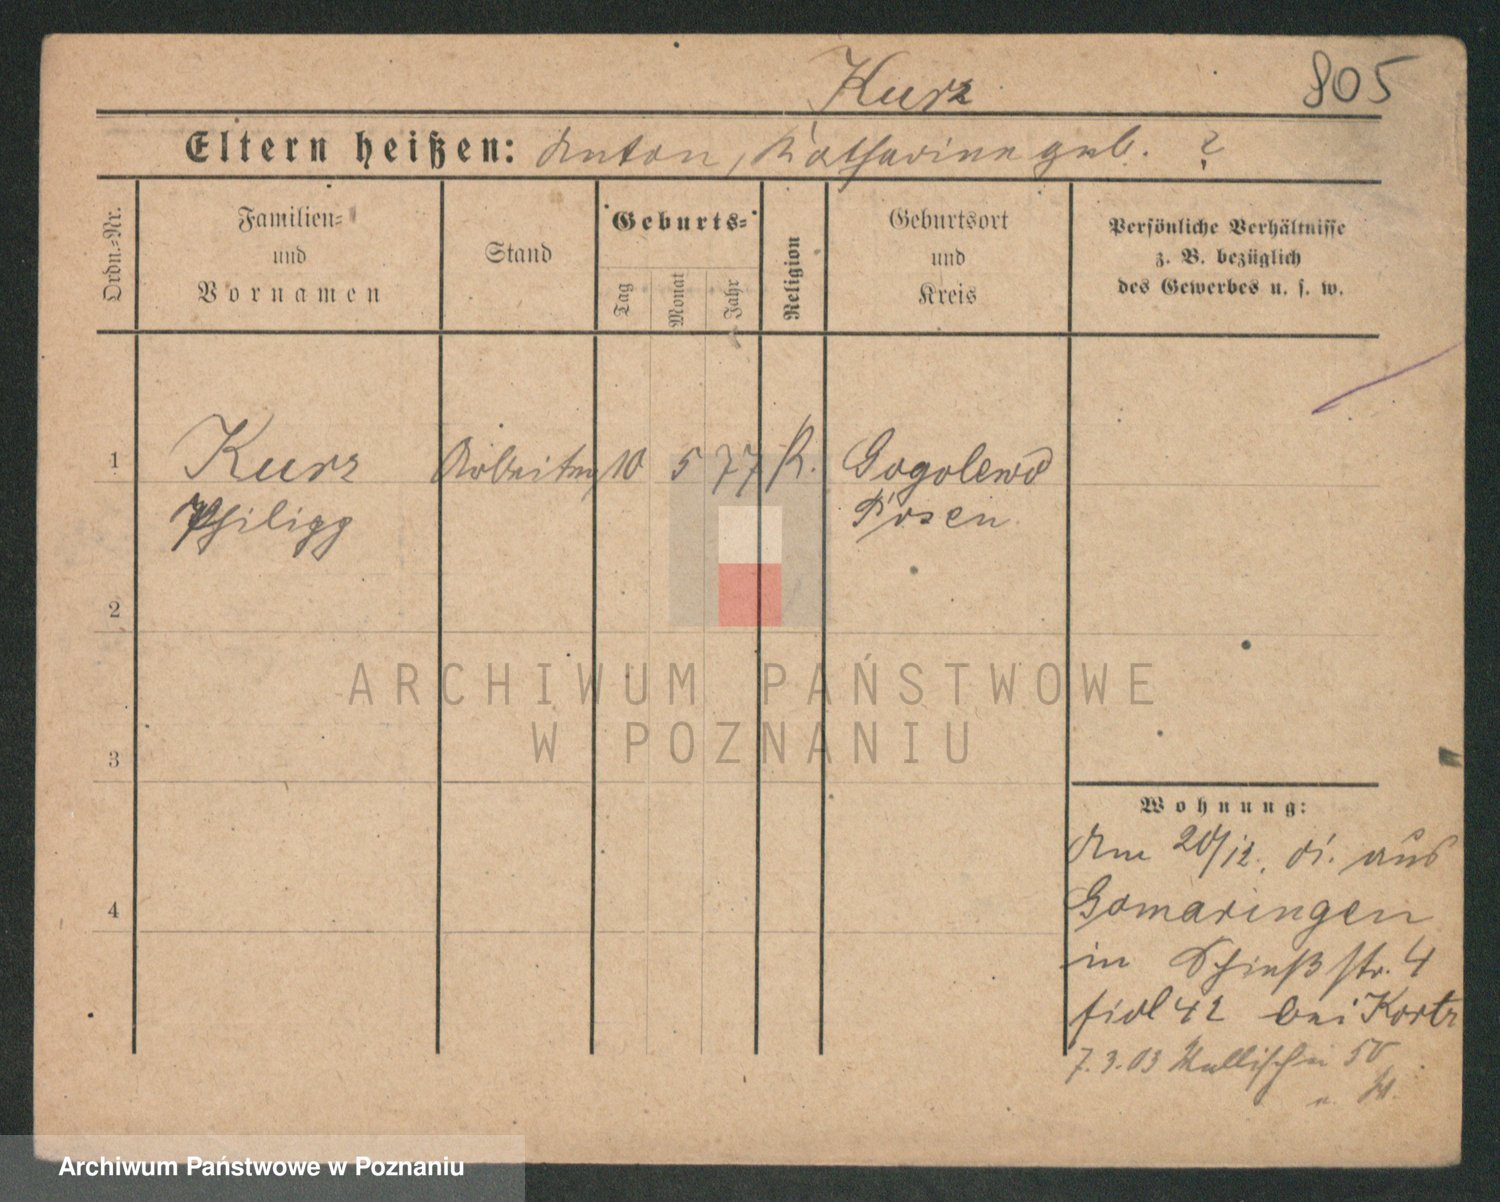 Kurz
805
Eltern heißen: Anton, Katharina geb. ?
Ordn.-Nr.
Familien-
und
Vornamen
Stand
Geburts-
Tag
Monat
Jahr
Religion
Geburtsort
und
Kreis
Persönliche Verhältnisse
z. B. bezüglich
des Gewerbes u. s. w.
1
Kurz
Arbeiter
10
5
77
K.
Gogolewo
Philipp
Posen
2
ARCHIWUM PAŃSTWOWE
W POZNANIU
3
Wohnung:
Am 20/12. 01. aus
4
Gomaringen
in Schießstr. 4
bei Kortz
7.3.03 Wallischei 50
Archiwum Państwowe w Poznaniu